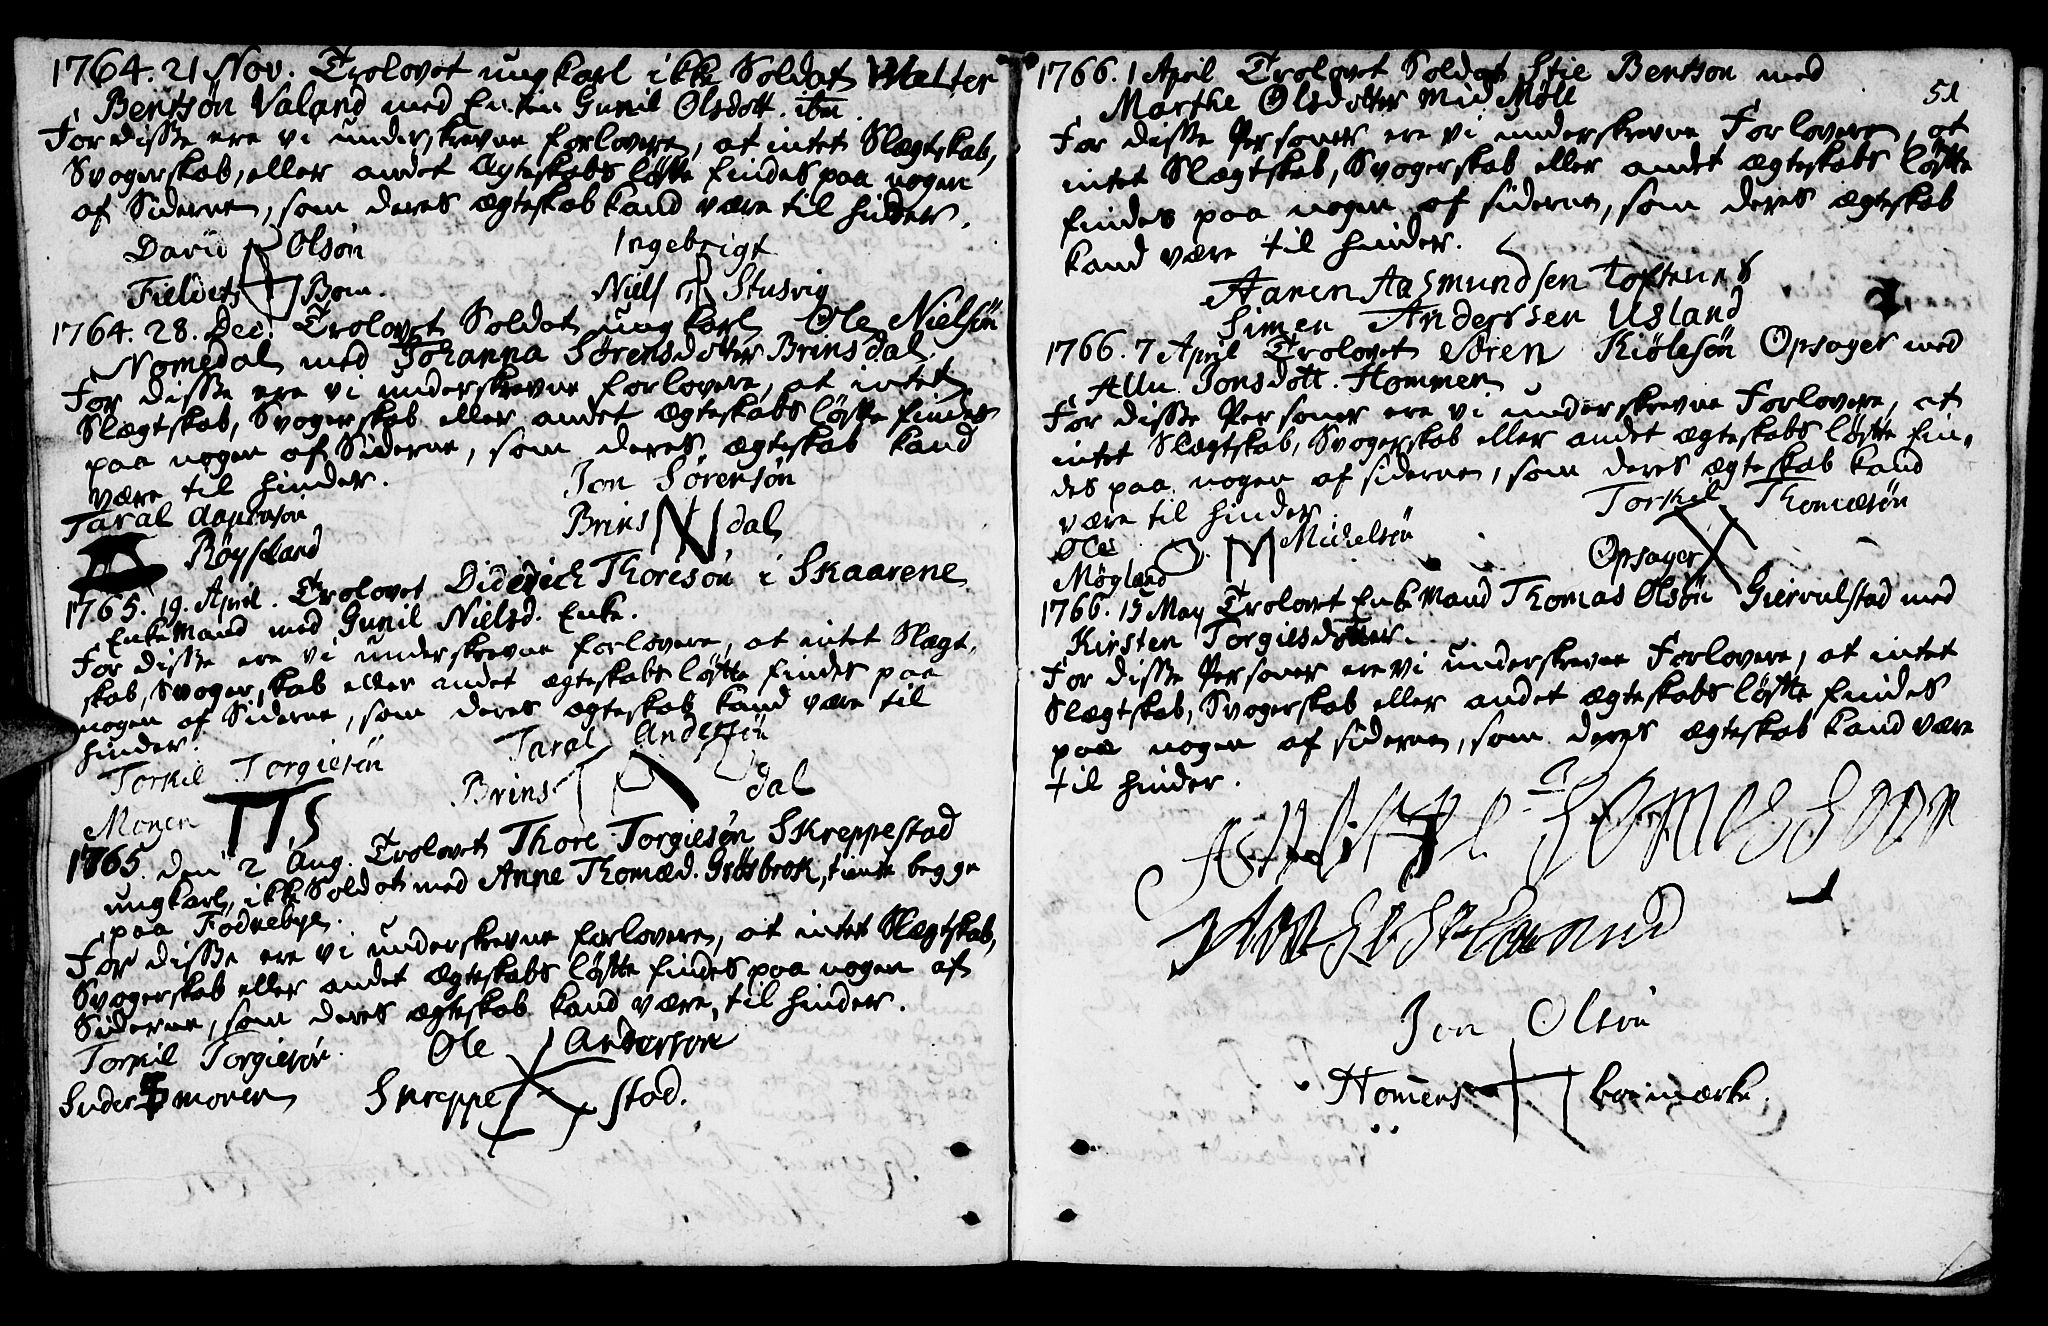 1764. 21 Nov. Trolovet ungkarl ikke Soldat Walter
Bentsøn Valand med Enken Gunil Olsdott. ibm.
For disse ere vi underskrevne forlovere, at intet Slægtskab,
Svogerskab, eller andet Ægteskabs løfte findes paa nogen
af Siderne, som deres ægteskab kand være til hinder.
David Olsøn Ingebrigt
Fieldets Bom. Niels Stusvig
1764. 28. Dec. Trolovet Soldat ungkarl Ole Nielsøn
Nomedal med Johanna Sørensdotter Brinsdal.
For disse ere vi underskrevne forlovere, at intet
Slægtskab, Svogerskab eller andet ægteskabs løfte findes
paa nogen af Siderne, som deres ægteskab kand
være til hinder. Jon Sørensøn
Taral Aanensøn Brins N dal
Røysland
1765. 19. April. Trolovet Diderich Thoresøn i Skaarene
EnkeMand med Gunil Nielsd. Enke.
For disse ere vi underskrevne forlovere, at intet Slægt-
skab, Svogerskab eller andet ægteskabs løfte findes paa
nogen af Siderne, som deres ægteskab kand være til
hinder.
Torkil Torgiesøn Taral Andersøn
Monen TTS Brins dal
1765. den 2 Aug. Trolovet Thore Torgiesøn Skreppestad
ungkarl, ikke Soldat med Anne Thomæd. Grøsbrok, tiente begge
paa Fodnebye.
For disse ere vi underskrevne forlovere, at intet Slægtskab,
Svogerskab eller andet ægteskabs løfte findes paa nogen af
Siderne, som deres ægteskab kand være til hinder.
Torkil Torgiesøn. Ole Andersøn
Suder monen Skreppe stad.
51
1766. 1 April Trolovet Soldat Stie Bentson med
Marthe Olsdotter Mid Møll
For disse Personer ere vi underskrevne Forlovere, at
intet Slægtskab, Svogerskab eller andet ægteskabs løfte
findes paa nogen af siderne, som deres ægteskab
kand være til hinder.
Aanen Aasmundsen Toftenes
Simen Anderssen Usland
1766. 7 April Trolovet Søren Kiølesøn Opsager med
Allu Jonsdott. Hommen
For disse Personer ere vi underskrevne Forlovere, at
intet Slægtskab, Svogerskab eller andet ægteskabs løfte fin-
des paa nogen af siderne, som deres ægteskab kand
være til hinder. Torkil Thomæsøn
Oles M Michelsøn
Møgland Opsager
1766. 15 May Trolovet EnkeMand Thomas Olsøn Giervulstad med
Kirsten Torgiesdotter.
For disse Personer ere vi underskrevne Forlovere, at intet
Slægtskab, Svogerskab eller andet ægteskabs løfte findes
paa nogen af siderne, som deres ægteskab kand være
til hinder.
Jon Olsøn
Homens boemærke.